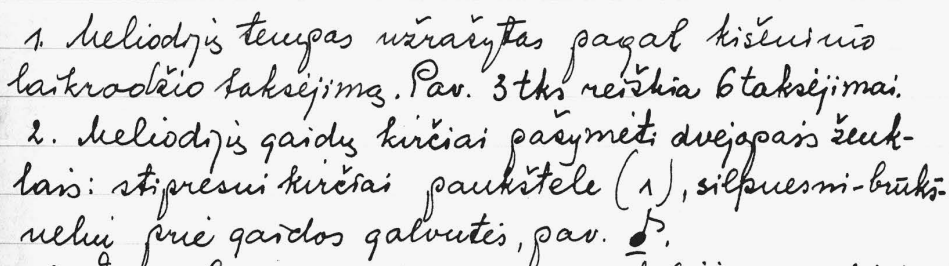 1. Meliodijų tempas užrašytas pagal kišeninio
laikrodžio taksėjimą. Pav. 3 tks reiškia 6 taksėjimai.
2. Meliodijų gaidų kirčiai pažymėti dvejopais ženk-
lais: stipresni kirčiai paukštele (^), silpnesni - brūkš-
neliu prie gaidos galvutės, pav. ♪.